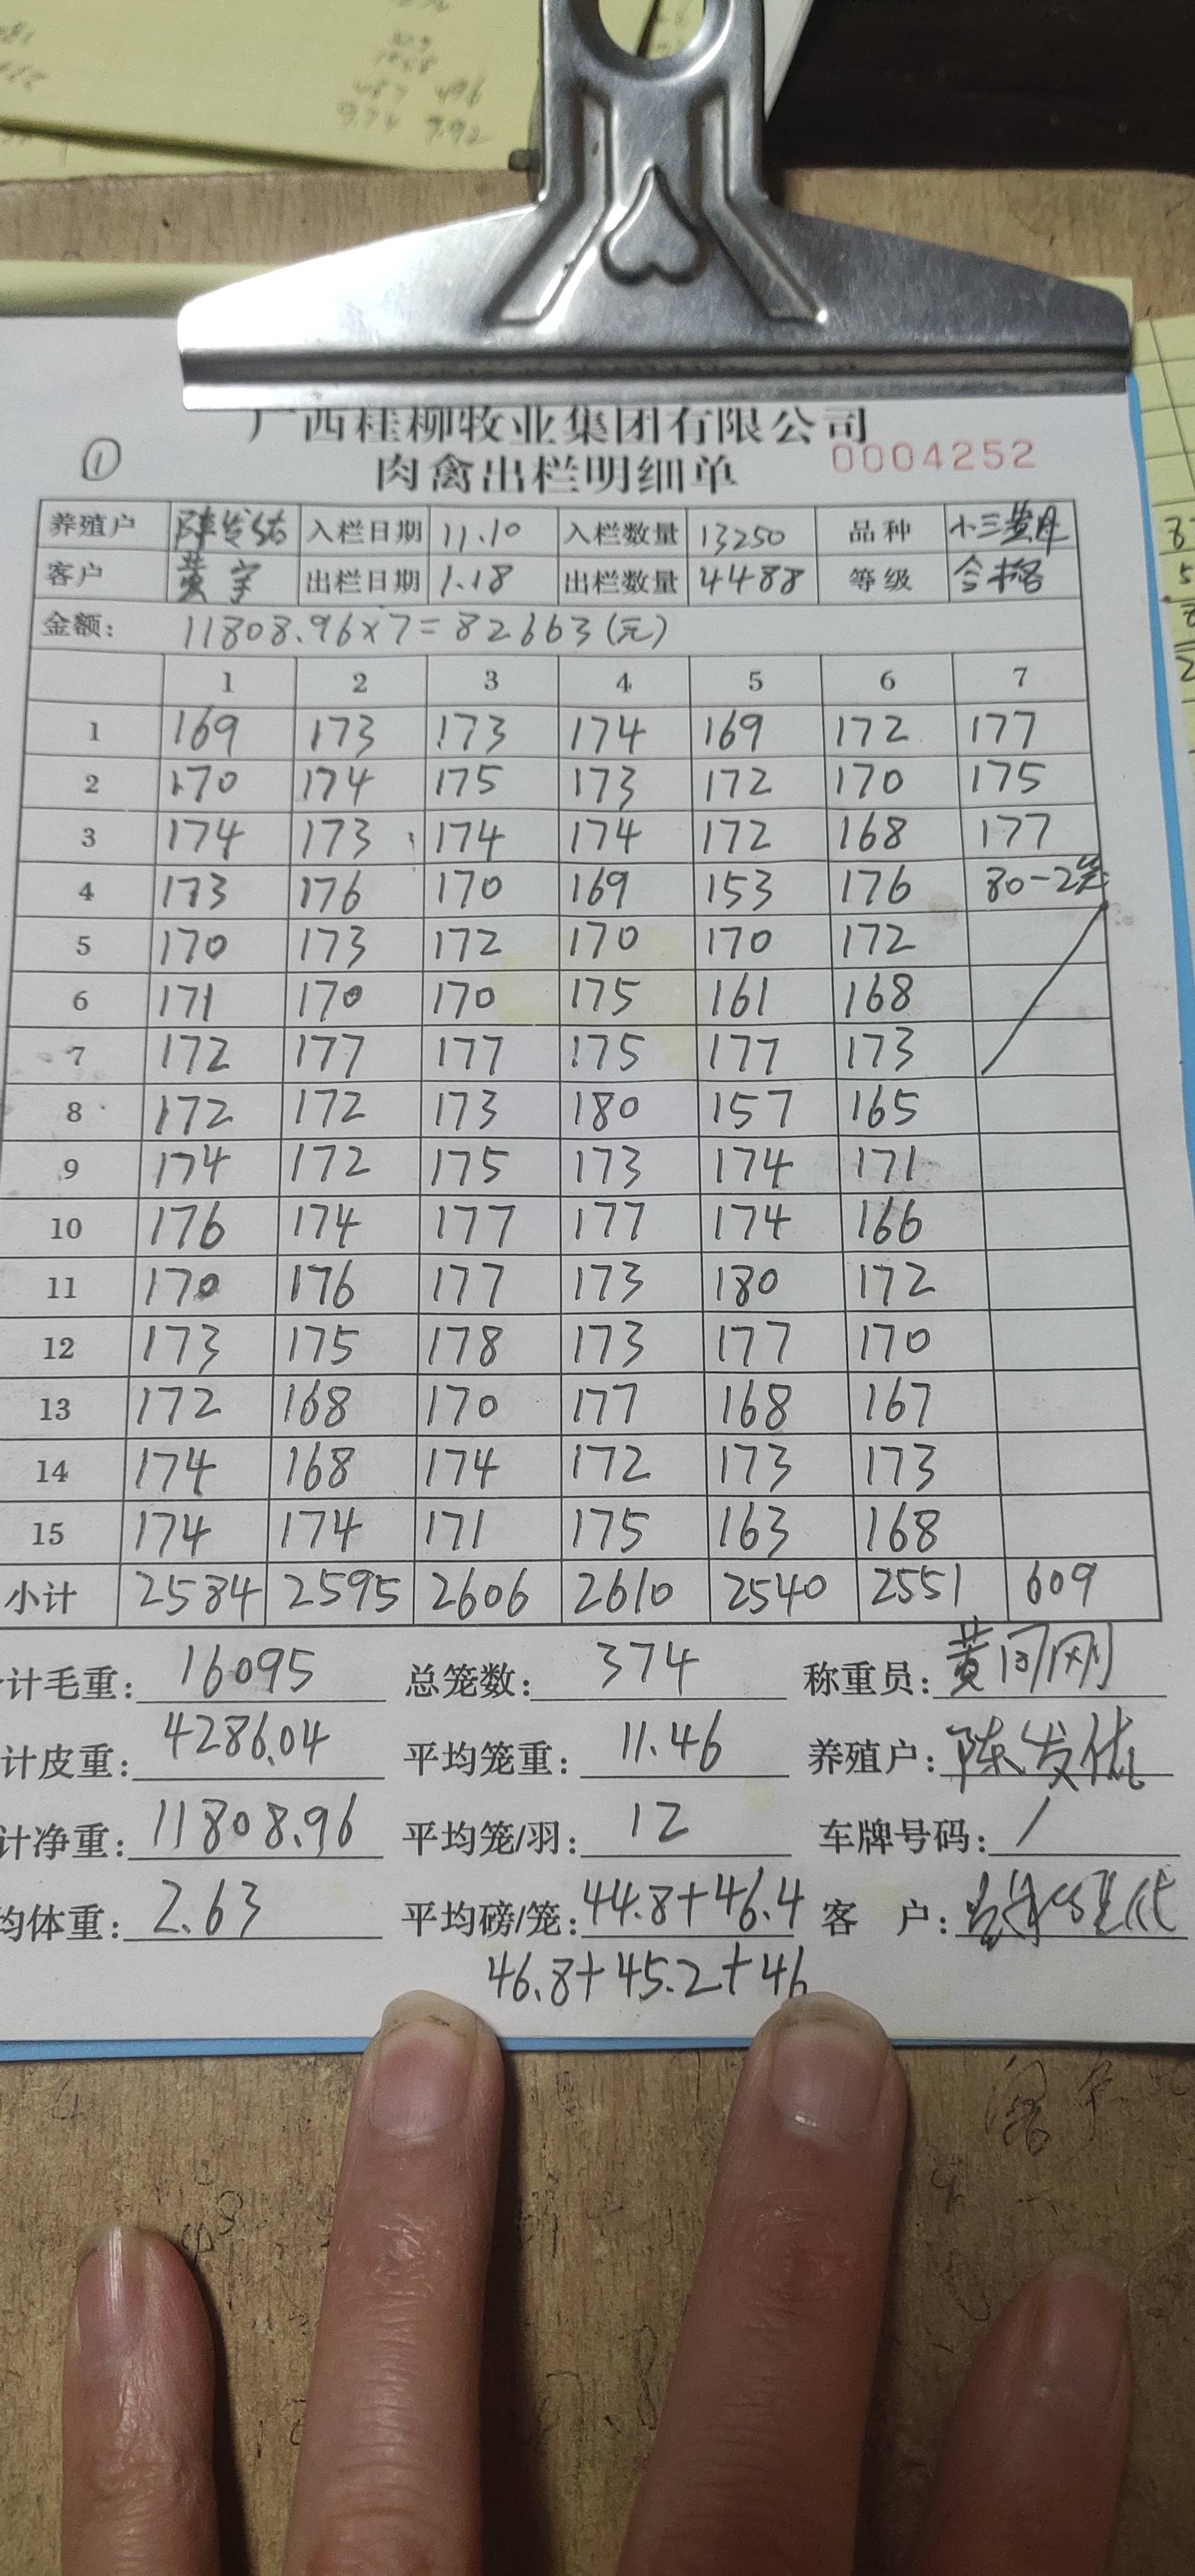 广西桂柳牧业集团有限公司
① 肉禽出栏明细单 0004252
养殖户 陈发佑 入栏日期 11.10 入栏数量 13250 品种 小三黄月
客户 黄宇 出栏日期 1.18 出栏数量 4488 等级 合格
金额: 11808.96×7=82663(元)
1 2 3 4 5 6 7
1 169 173 173 174 169 172 177
2 170 174 175 173 172 170 175
3 174 173 174 174 172 168 177
4 173 176 170 169 153 176 80-2笼
5 170 173 172 170 170 172
6 171 170 170 175 161 168
7 172 177 177 175 177 173
8 172 172 173 180 157 165
9 174 172 175 173 174 171
10 176 174 177 177 174 166
11 170 176 177 173 180 172
12 173 175 178 173 177 170
13 172 168 170 177 168 167
14 174 168 174 172 173 173
15 174 174 171 175 163 168
小计 2584 2595 2606 2610 2540 2551 609
计毛重: 16095 总笼数: 374 称重员: 黄刚
计皮重: 4286.04 平均笼重: 11.46 养殖户: 陈发佑
计净重: 11808.96 平均笼/羽: 12 车牌号码: /
均体重: 2.63 平均磅/笼: 44.8+46.4 客 户:
46.8+45.2+46